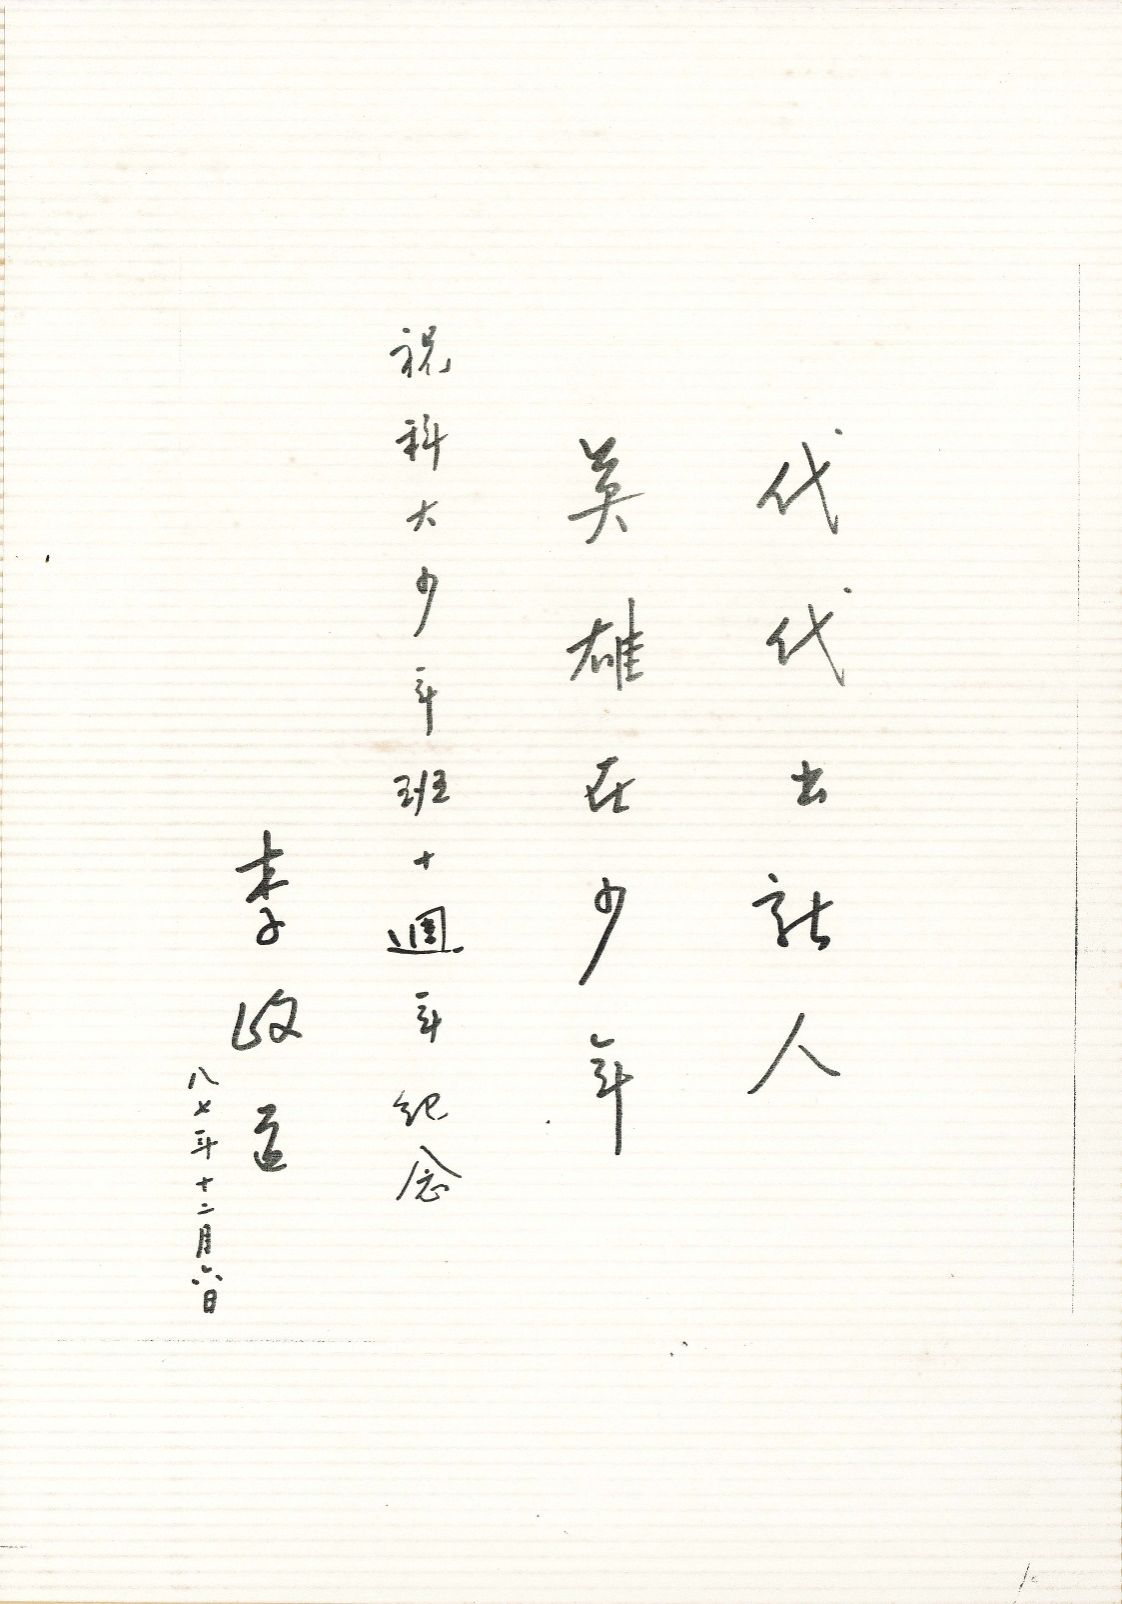 代代出新人
英雄在少年
祝科大少年班十週年紀念
李政道
八七年十二月六日